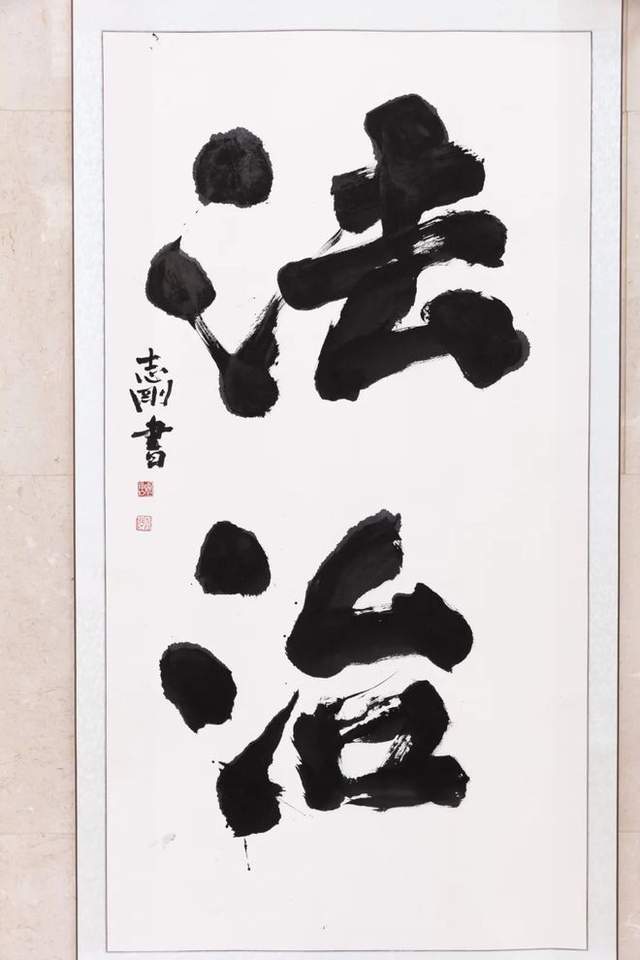 法治
志剛書